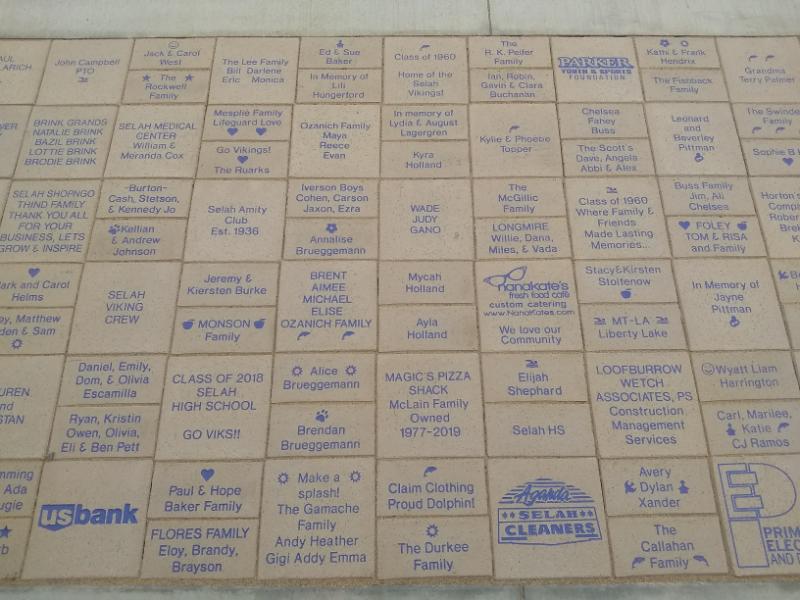 AUL
LARICH
John Campbell
PTO
Jack & Carol
West
The
Rockwell
Family
The Lee Family
Bill Darlene
Eric Monica
Ed & Sue
Baker
In Memory of
Lili
Hungerford
Class of 1960
Home of the
Selah
Vikings!
The
R. K. Peifer
Family
Ian, Robin,
Gavin & Clara
Buchanan
PARKER
YOUTH & SPORTS
FOUNDATION
Kathi & Frank
Hendrix
The Fishback
Family
Grandma
Terry Palmer
VER
BRINK GRANDS
NATALIE BRINK
BAZIL BRINK
LOTTIE BRINK
BRODIE BRINK
SELAH MEDICAL
CENTER
William &
Meranda Cox
Mesplie Family
Lifeguard Love
Go Vikings!
The Ruarks
Ozanich Family
Maya
Reece
Evan
In memory of
Lydia & August
Lagergren
Kyra
Holland
Kylie & Phoebe
Topper
Chelsea
Fahey
Buss
The Scott's
Dave, Angela
Abbi & Alex
Leonard
and
Beverley
Pittman
The Swinde
Family
Sophie B
SELAH SHOPNGO
THIND FAMILY
THANK YOU ALL
FOR YOUR
BUSINESS, LETS
GROW & INSPIRE
-Burton-
Cash, Stetson,
& Kennedy Jo
Kellian
& Andrew
Johnson
Selah Amity
Club
Est. 1936
Iverson Boys
Cohen, Carson
Jaxon, Ezra
Annalise
Brueggemann
WADE
JUDY
GANO
The
McGillic
Family
LONGMIRE
Willie, Dana,
Miles, & Vada
Class of 1960
Where Family &
Friends
Made Lasting
Memories...
Buss Family
Jim, Ali
Chelsea
FOLEY
TOM & RISA
and Family
Horton's
Comp
Rober
Bre
K
ark and Carol
Helms
ey, Matthew
den & Sam
SELAH
VIKING
CREW
Jeremy &
Kiersten Burke
MONSON
Family
BRENT
AIMEE
MICHAEL
ELISE
OZANICH FAMILY
Mycah
Holland
Ayla
Holland
nanakate's
fresh food café
custom catering
www.NanaKates.com
We love our
Community
Stacy&Kirsten
Stoltenow
MT-LA
Liberty Lake
In Memory of
Jayne
Pittman
UREN
nd
STAN
Daniel, Emily,
Dom, & Olivia
Escamilla
Ryan, Kristin
Owen, Olivia,
Eli & Ben Pett
CLASS OF 2018
SELAH
HIGH SCHOOL
GO VIKS!!
Alice
Brueggemann
Brendan
Brueggemann
MAGIC'S PIZZA
SHACK
McLain Family
Owned
1977-2019
Elijah
Shephard
Selah HS
LOOFBURROW
WETCH
ASSOCIATES, PS
Construction
Management
Services
Wyatt Liam
Harrington
Carl, Marilee,
Katie
CJ Ramos
mming
Ada
ugie
rb
usbank
Paul & Hope
Baker Family
FLORES FAMILY
Eloy, Brandy,
Brayson
Make a
splash!
The Gamache
Family
Andy Heather
Gigi Addy Emma
Claim Clothing
Proud Dolphin!
The Durkee
Family
Aganda
SELAH
CLEANERS
Avery
Dylan
Xander
The
Callahan
Family
EP
PRIM
ELEC
AND